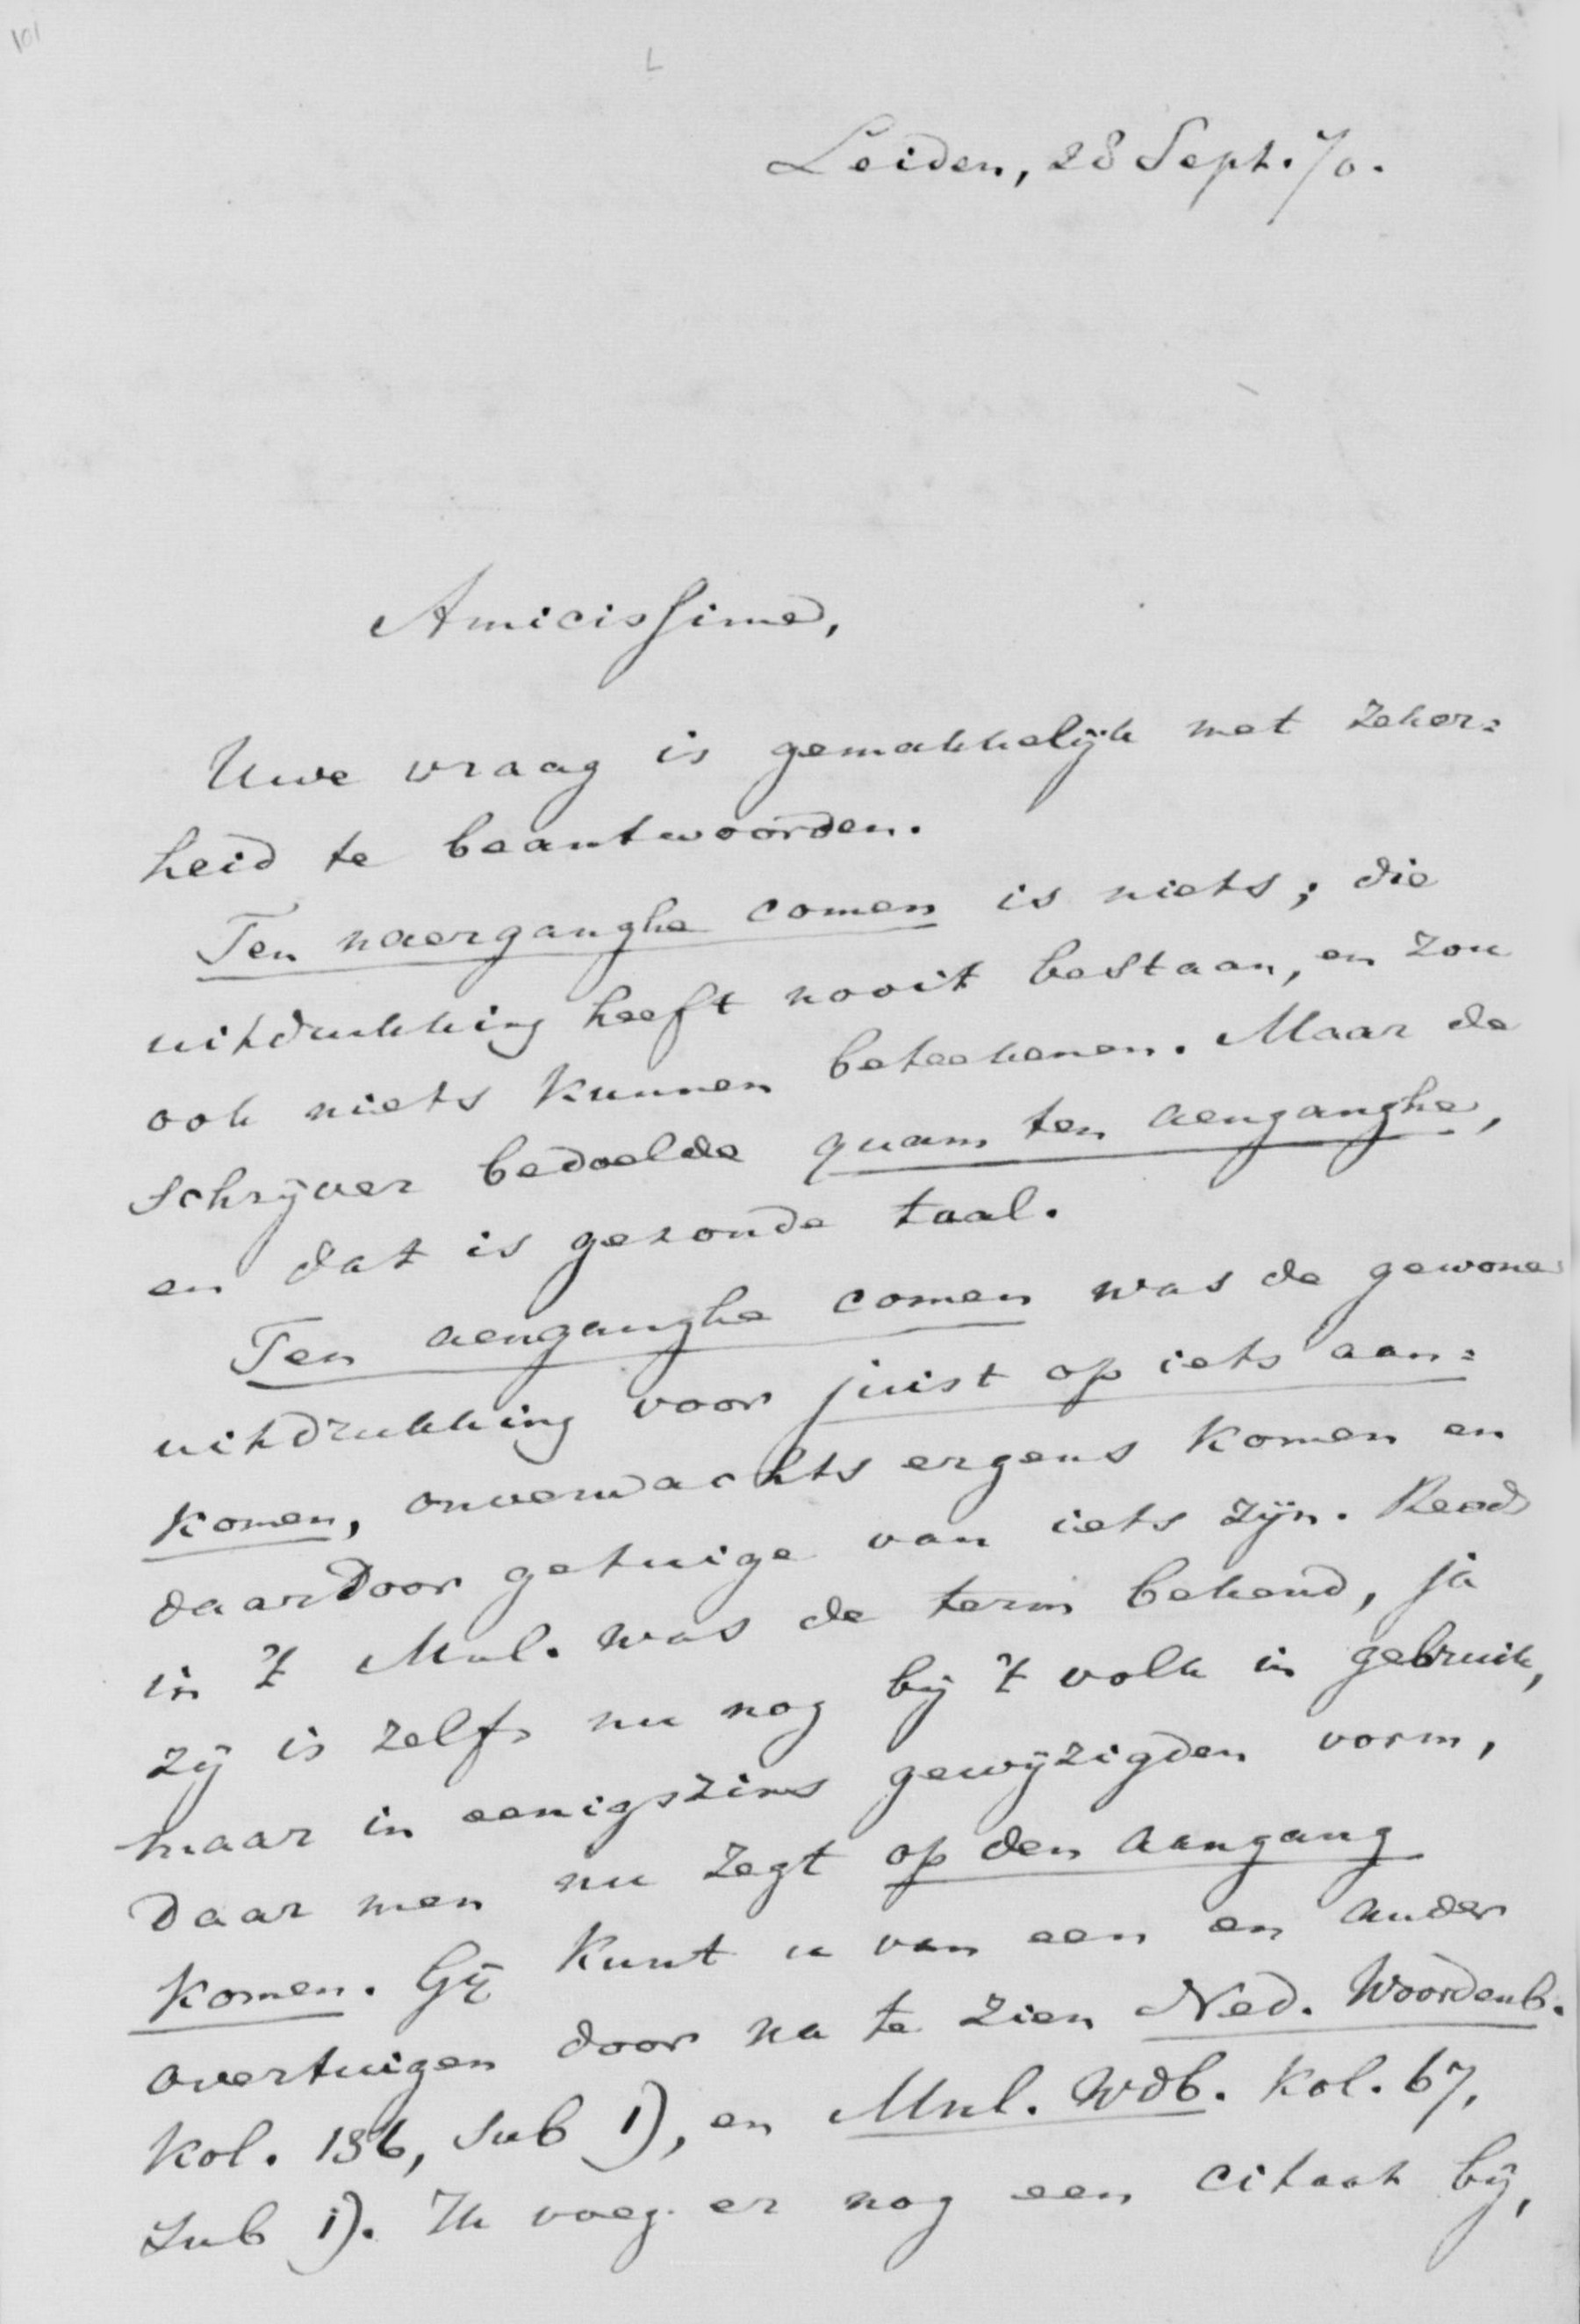 101
L
Leiden, 28 Sept. 70.
Amicissime,
Uwe vraag is gemakkelijk met zeker=
heid te beantwoorden.
Ten naerganghe comen is niets; die
uitdrukking heeft nooit bestaan, en zou
ook niets kunnen beteekenen. Maar de
schrijver bedoelde quam ten aenganghe,
en dat is gezonde taal.
Ten aenganghe comen was de gewone
uitdrukking voor juist op iets aan=
komen, onverwachts ergens komen en
daardoor getuige van iets zijn. Reeds
in 't Mnl. was de term bekend, ja
zij is zelfs nu nog bij 't volk in gebruik,
maar in eenigszins gewijzigden vorm,
daar men nu zegt op den aangang
komen. Gij kunt u van een en ander
overtuigen door na te zien Ned. Woordenb.
Kol. 136, sub 1), en Mnl. Wdb. Kol. 67,
sub 1). Ik voeg er nog een citaat bij,